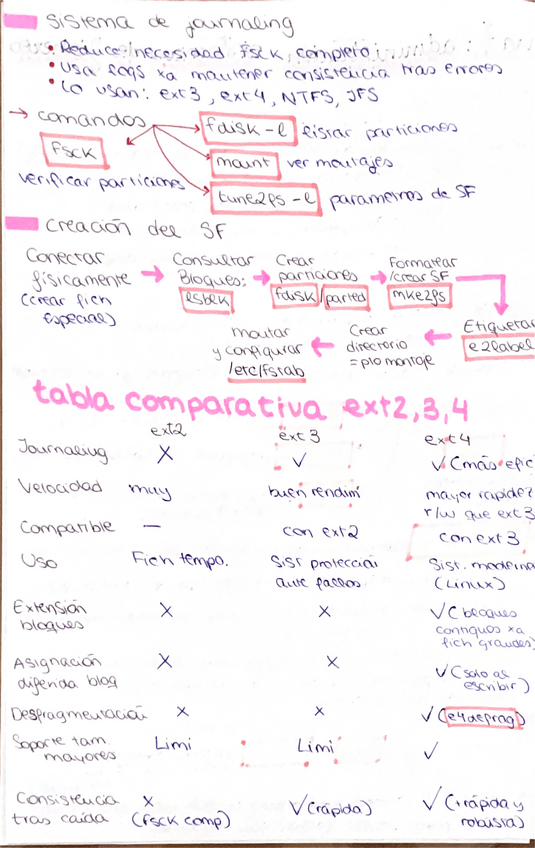 sistema de journaling
• Reduce necesidad fsck, completo
• Usa logs xa mantener consistencia tras errores
• Lo usan: ext3, ext4, NTFS, JFS
→ comandos
fdisk -l listar particiones
fsck
mount ver montajes
verificar particiones
tune2fs -l parámetros de SF
creación del SF
Conectar físicamente (crear fich especial) → Consultar Bloques: lsblk → Crear particiones fdisk/parted → Formatear /crear SF mke2fs
Etiquetar e2label ← Crear directorio = pto montaje ← montar y configurar /etc/fstab
tabla comparativa ext2,3,4
ext2 ext3 ext4
Journaling X ✓ ✓ (más efic
Velocidad muy buen rendimi mayor rapidez r/w que ext3
Compatible — con ext2 con ext3
Uso Fich tempo. Sist protección ante fallos Sist. moderna (Linux)
Extensión bloques X X ✓ (bloques contiguos xa fich grandes)
Asignación diferida bloq X X ✓ (solo al escribir)
Desfragmentación X X ✓ (e4defrag)
Soporte tam mayores Limi Limi ✓
Consistencia tras caída X (fsck comp) ✓ (rápida) ✓ (+rápida y robusta)